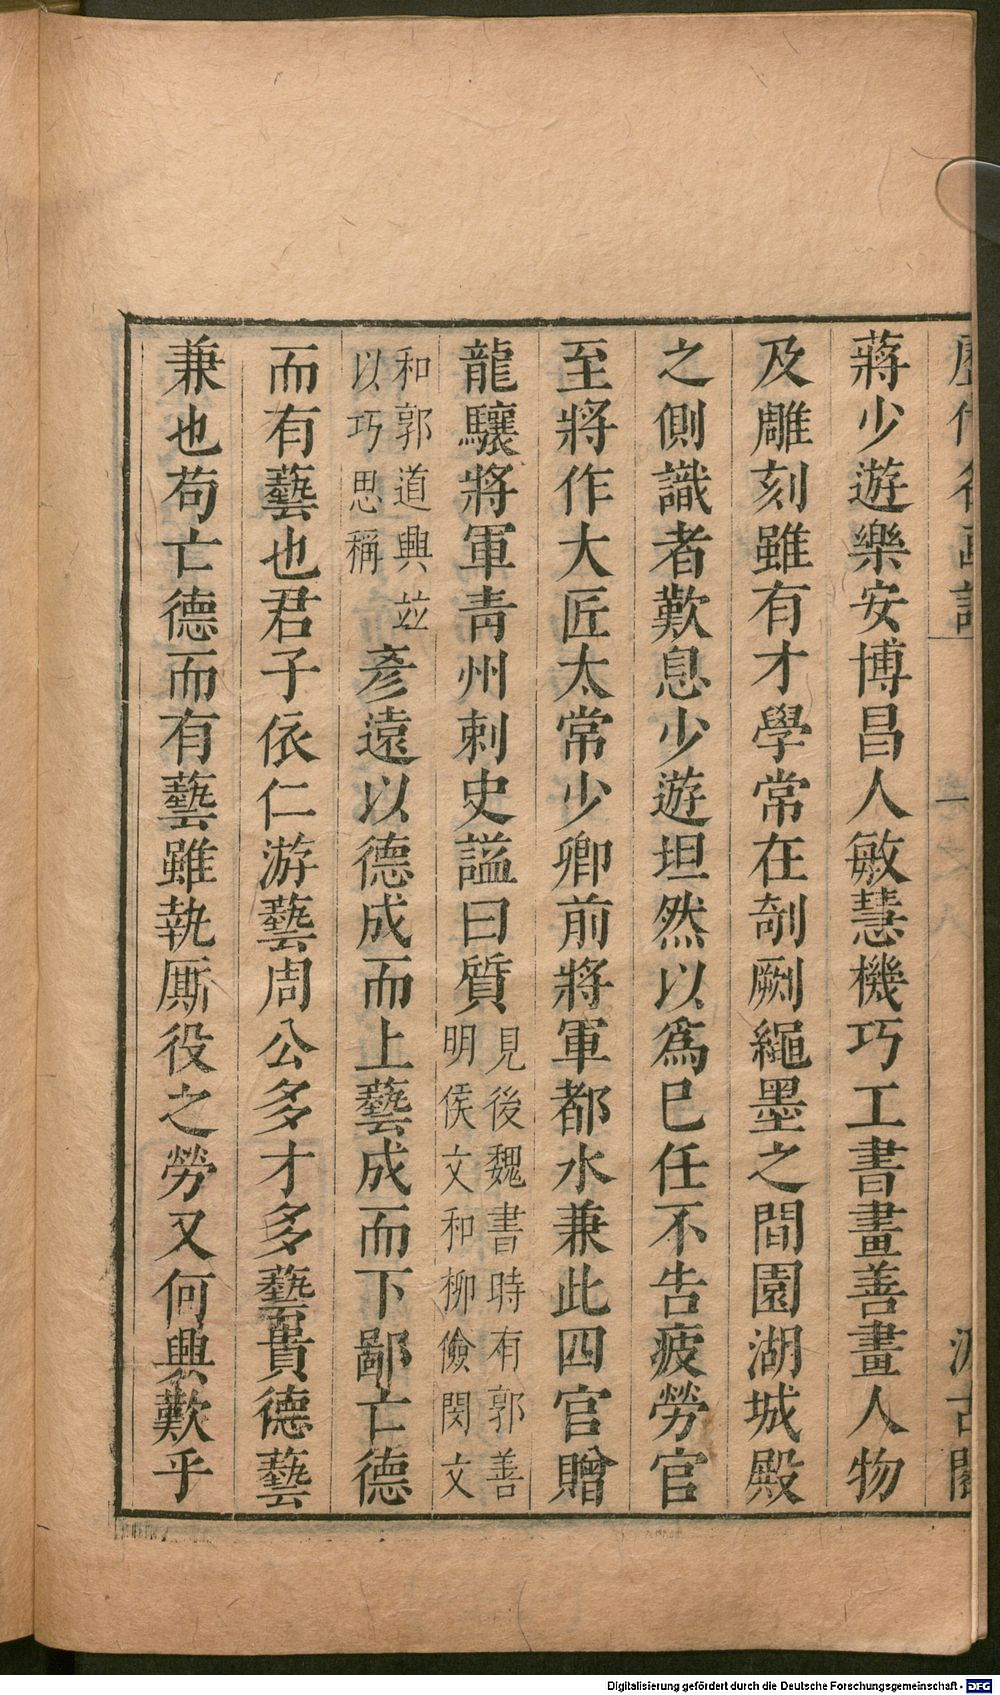 蔣少遊樂安博昌人敏慧機巧工書畫善畫人物
及雕刻雖有才學常在剞劂繩墨之間園湖城殿
之側識者歎息少遊坦然以爲已任不告疲勞官
至將作大匠太常少卿前將軍都水兼此四官贈
龍驤將軍青州刺史謚曰質見後魏書時有郭善
明侯文和柳儉閔文
和郭道興竝
以巧思稱
彥遠以德成而上藝成而下鄙亡德
而有藝也君子依仁游藝周公多才多藝貴德藝
兼也苟亡德而有藝雖執厮役之勞又何興歎乎
Digitalisierung gefördert durch die Deutsche Forschungsgemeinschaft - DFG